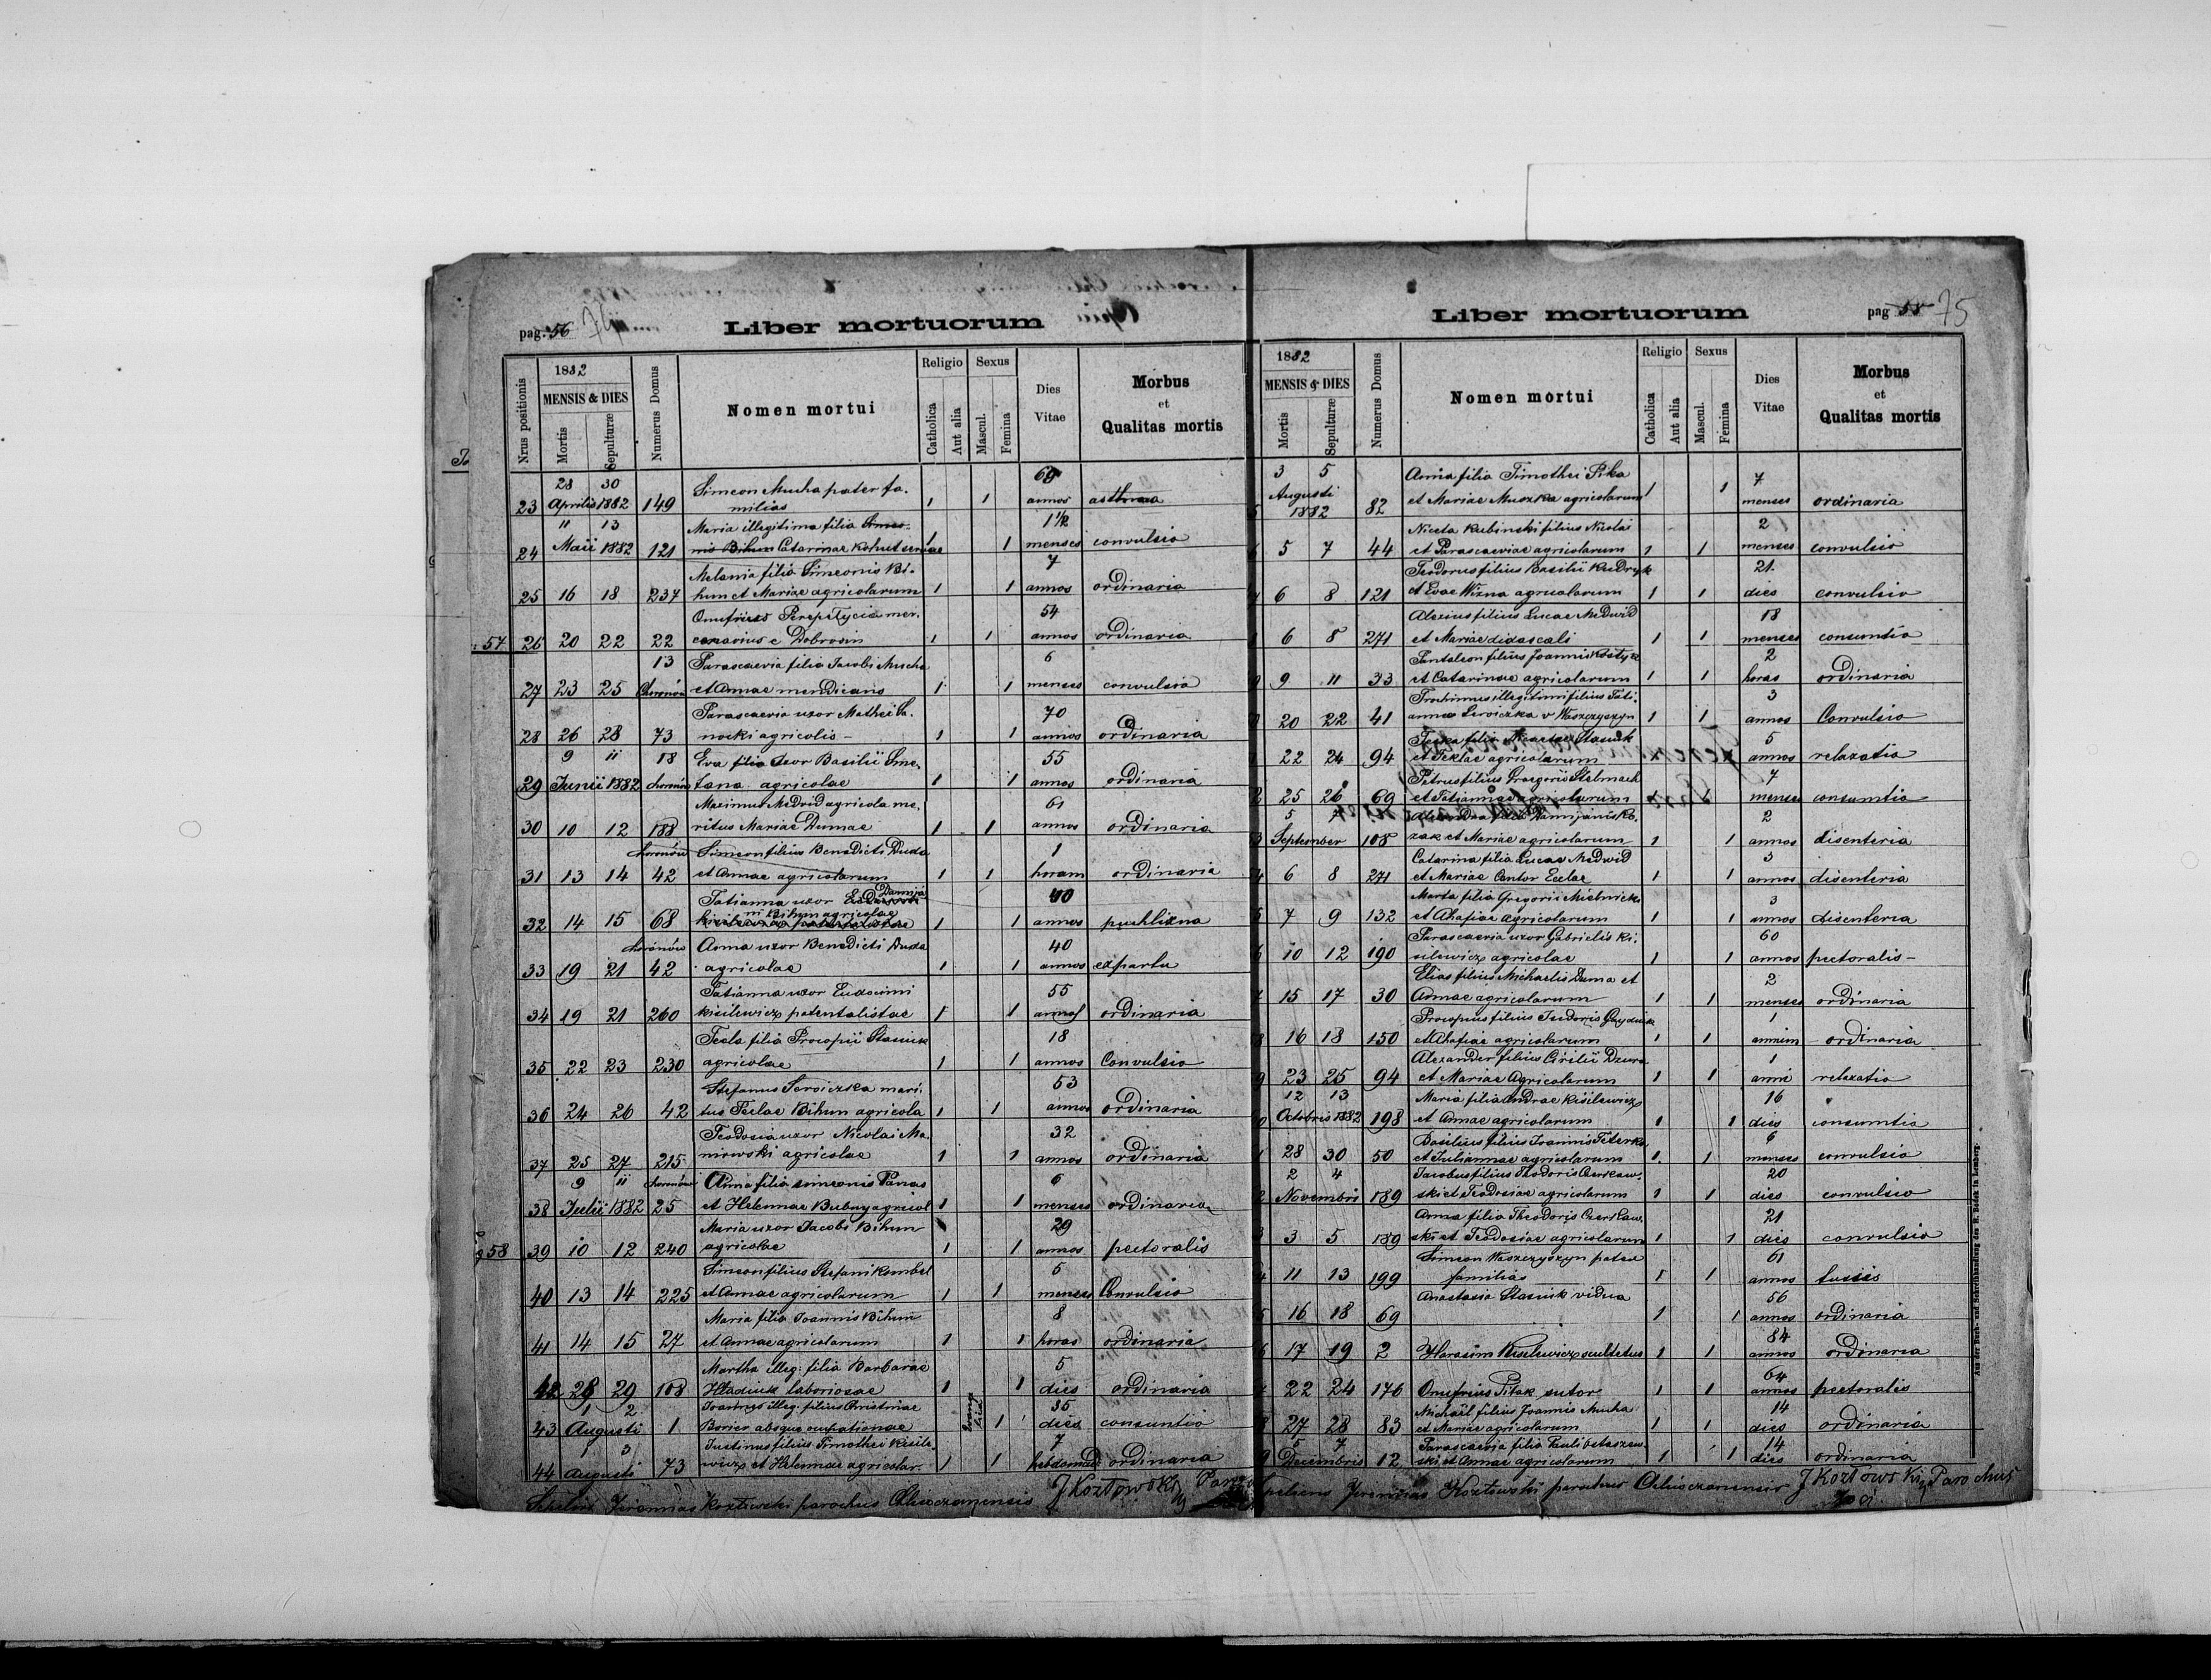 pag. 56
Liber mortuorum
Nrus positionis
1882
MENSIS & DIES
Mortis
Sepulturæ
Numerus Domus
Nomen mortui
Religio
Catholica
Aut alia
Sexus
Mascul.
Femina
Dies
Vitae
Morbus
et
Qualitas mortis
28 30 Simeon Mucha pater fa- 69
23 Aprilis 1882 149 milias 1 1 annos asthma
11 13 Maria illegitima filia 1 1/2
24 Maii 1882 121 Catarinae Kohut servae 1 1 menses convulsio
Melania filia Simeonis Bi- 7
25 16 18 237 hun et Mariae agricolarum 1 1 annos ordinaria
Onufrius Perepłycia mer- 54
57 26 20 22 22 cenarius e Dobrosin 1 1 annos ordinaria
13 Parascaevia filia Jacobi Mucha 6
27 23 25 Choronów et Annae mendicans 1 1 menses convulsio
Parascaevia uxor Mathei Sa- 70
28 26 28 73 nocki agricolis 1 1 annos ordinaria
9 11 18 Eva filia uxor Basilii Sme- 55
29 Junii 1882 choronów tana agricolae 1 1 annos ordinaria
Maximus Medvid agricola ma- 61
30 10 12 188 ritus Mariae Dumae 1 1 annos ordinaria
choronów Simeon filius Benedicti Duda 1
31 13 14 42 et Annae agricolarum 1 1 horam ordinaria
Tatianna uxor Damija- 40
32 14 15 68 ni Bihun agricolae 1 1 annos puchlizna
choronów Anna uxor Benedicti Duda 40
33 19 21 42 agricolae 1 1 annos ex partu
Tatianna uxor Eudocimi 55
34 19 21 260 Kisilewicz patentalistae 1 1 annos ordinaria
Tecla filia Procopii Stasiuk 18
35 22 23 230 agricolae 1 1 annos Convulsio
Stefanus Seroiczka mari- 53
36 24 26 42 tus Teclae Bihun agricola 1 1 annos ordinaria
Teodosia uxor Nicolai Ma- 32
37 25 27 215 niowski agricolae 1 1 annos ordinaria
9 11 choronów Anna filia simeonis Panas 6
38 Julii 1882 25 et Helennae Bubny agricol 1 1 menses ordinaria
Maria uxor Jacobi Bihun 29
58 39 10 12 240 agricolae 1 1 annos pectoralis
Simeon filius Stefani Kombel 5
40 13 14 225 et Annae agricolarum 1 1 menses Convulsio
Maria filia Joannis Bihun 8
41 14 15 27 et Annae agricolarum 1 1 horas ordinaria
Martha illeg: filia Barbarae 5
42 28 29 108 Hladiuk laboriosae 1 1 dies ordinaria
1 2 Joannes illeg. filius Christinae 35
43 Augusti 1 Borier absque ocupationae 1 dies consuntio
1 3 Justinus filius Timothei Kisile- 7
44 Augusti 73 wicz et Helennae agricolar. 1 1 hebdomad ordinaria
Jeremias Kozłowski parochus J Kozłowski
Liber mortuorum
pag 75
1882
MENSIS & DIES
Mortis
Sepulturæ
Numerus Domus
Nomen mortui
Religio
Catholica
Aut alia
Sexus
Mascul.
Femina
Dies
Vitae
Morbus
et
Qualitas mortis
3 5 Anna filia Timothei Pika 7
Augusti 1882 82 et Mariae Muszka agricolarum 1 1 menses ordinaria
Niceta Rubinski filius Nicolai 2
5 7 44 et Parascaeviae agricolarum 1 1 menses convulsio
Teodorus filius Basilii Kudryk 21.
6 8 121 et Evae Wizna agricolarum 1 1 dies convulsio
Alexius filius Lucae Medwid 18
6 8 271 et Mariae didascali 1 1 menses consumtio
Pantaleon filius Joannis Kostyk 2
9 11 33 et Catarinae agricolarum 1 1 horas ordinaria
Trochimus illegitimi filius Tati- 3
20 22 41 annae Seroiczka v Waszczyszyn 1 1 annos Convulsio
Stasiuk 5
22 24 94 et Teklae agricolarum annos relaxatio
Petrus filius Gregorii Stelmach 7
25 26 69 et Tatiannae agricolarum menses consumtio
5 7 Alexandra Damijanis Ko- 2
September 108 zak et Mariae agricolarum 1 1 annos disenteria
Catarina filia Lucae Medwid 3
6 8 271 et Mariae Cantor Eclae 1 1 annos disenteria
Marta filia Gregorii Mielnicki 3
7 9 132 et Ahafiae agricolarum 1 1 annos disenteria
Parascaevia uxor Gabrielis Ki- 60
10 12 190 silewicz agricolae 1 1 annos pectoralis
Elias filius Michaelis Duma et 2
15 17 30 Annae agricolarum 1 1 menses ordinaria
Procopius filius Teodoris 1
16 18 150 et Ahafiae agricolarum 1 1 annum ordinaria
Alexander filius Cirilii Dzura 1
23 25 94 et Mariae Agricolarum 1 1 anni relaxatio
12 13 Maria filia Andrae Kisilewicz 16
Octobris 1882 198 et Annae agricolarum 1 1 dies consumtio
Basilius filius Joannis Teterko 6
28 30 50 et Juliannae agricolarum 1 1 menses convulsio
2 4 Jacobus filius Theodoris Czerkaw- 20
Novembris 189 ski et Teodosiae agricolarum 1 1 dies convulsio
Anna filia Theodoris Czerkaw- 21
3 5 189 ski et Teodosiae agricolarum 1 1 dies convulsio
Simeon Waszczyszyn pater 61
11 13 199 familias 1 1 annos tussis
Anastasia Stasiuk vidua 56
16 18 69 1 1 annos ordinaria
84
17 19 2 Harasim Kisilewicz scultetus 1 1 annos ordinaria
64
22 24 176 Onufrius Pitak sutor 1 1 annos pectoralis
Michaël filius Joannis Mucha 14
27 28 83 et Mariae agricolarum 1 1 dies ordinaria
5 7 Parascaevia filia Pauli Ostaszew- 14
Decembris 12 ski et Annae agricolarum 1 1 dies ordinaria
Jeremias Kozłowski parochus J Kozłowski Parochus
Aus der Buch- und Steindruckerei des H. Bodek in Lemberg.